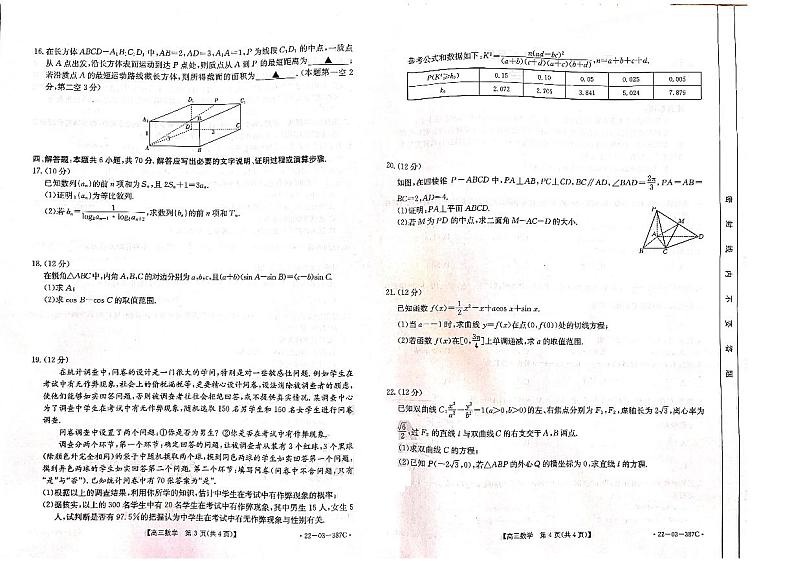 16. 在长方体 ABCD-A₁B₁C₁D₁ 中, AB=2, AD=3, A₁A=1, P 为线段 C₁D₁ 的中点, 一质点
从 A 点出发, 沿长方体表面运动到达 P 点处, 则质点从 A 到 P 的最短距离为 ▲ ;
若沿质点 A 的最短运动路线截长方体, 则所得截面的面积为 ▲ . (本题第一空 2
分, 第二空 3 分)
四、解答题: 本题共 6 小题, 共 70 分. 解答应写出必要的文字说明、证明过程或演算步骤.
17. (10 分)
已知数列{aₙ}的前 n 项和为 Sₙ, 且 2Sₙ+1=3aₙ.
(1)证明: {aₙ}为等比数列.
(2)若 bₙ=1/(log₃aₙ₊₁·log₃aₙ₊₂), 求数列{bₙ}的前 n 项和 Tₙ.
18. (12 分)
在锐角△ABC 中, 内角 A,B,C 的对边分别为 a,b,c, 且(a+b)(sin A-sin B)=(c-b)sin C.
(1)求 A;
(2)求 cos B-cos C 的取值范围.
19. (12 分)
在统计调查中, 问卷的设计是一门很大的学问, 特别是对一些敏感性问题. 例如学生在
考试中有无作弊现象, 社会上的偷税漏税等, 更要精心设计问卷, 设法消除被调查者的顾虑,
使他们能够如实回答问题, 否则被调查者往往会拒绝回答, 或不提供真实情况. 某调查中心
为了调查中学生在考试中有无作弊现象, 随机选取 150 名男学生和 150 名女学生进行问卷
调查.
问卷调查中设置了两个问题: ①你是否为男生? ②你是否在考试中有作弊现象.
调查分两个环节, 第一个环节: 确定回答的问题, 让被调查者从装有 3 个红球, 3 个黑球
(除颜色外完全相同)的袋子中随机摸取两个球, 摸到同色两球的学生如实回答第一个问题,
摸到异色两球的学生如实回答第二个问题. 第二个环节: 填写问卷(问卷中不含问题, 只有
“是”与“否”). 已知统计问卷中有 70 张答案为“是”.
(1)根据以上的调查结果, 利用你所学的知识, 估计中学生在考试中有作弊现象的概率;
(2)据核实, 以上的 300 名学生中有 20 名学生在考试中有作弊现象, 其中男生 15 人, 女生 5
人, 试判断是否有 97.5%的把握认为中学生在考试中有无作弊现象与性别有关.
【高三数学 第 3 页(共 4 页)】
·22-03-387C·
参考公式和数据如下: K²=n(ad-bc)²/((a+b)(c+d)(a+c)(b+d)), n=a+b+c+d.
P(K²≥k₀) 0.15 0.10 0.05 0.025 0.005
k₀ 2.072 2.706 3.841 5.024 7.879
20. (12 分)
如图, 在四棱锥 P-ABCD 中, PA⊥AB, PC⊥CD, BC∥AD, ∠BAD=2π/3, PA=AB=
BC=2, AD=4.
(1)证明: PA⊥平面 ABCD.
(2)若 M 为 PD 的中点, 求二面角 M-AC-D 的大小.
21. (12 分)
已知函数 f(x)=1/2x²-x+acos x+sin x.
(1)当 a=-1 时, 求曲线 y=f(x)在点(0, f(0))处的切线方程;
(2)若函数 f(x)在[0, 3π/4]上单调递减, 求 a 的取值范围.
22. (12 分)
已知双曲线 C: x²/a²-y²/b²=1(a>0, b>0)的左、右焦点分别为 F₁, F₂, 虚轴长为 2√3, 离心率为
√6/2, 过 F₂ 的直线 l 与双曲线 C 的右支交于 A, B 两点.
(1)求双曲线 C 的方程;
(2)已知 P(-2√3, 0), 若△ABP 的外心 Q 的横坐标为 0, 求直线 l 的方程.
【高三数学 第 4 页(共 4 页)】
·22-03-387C·
密 封 线 内 不 要 答 题